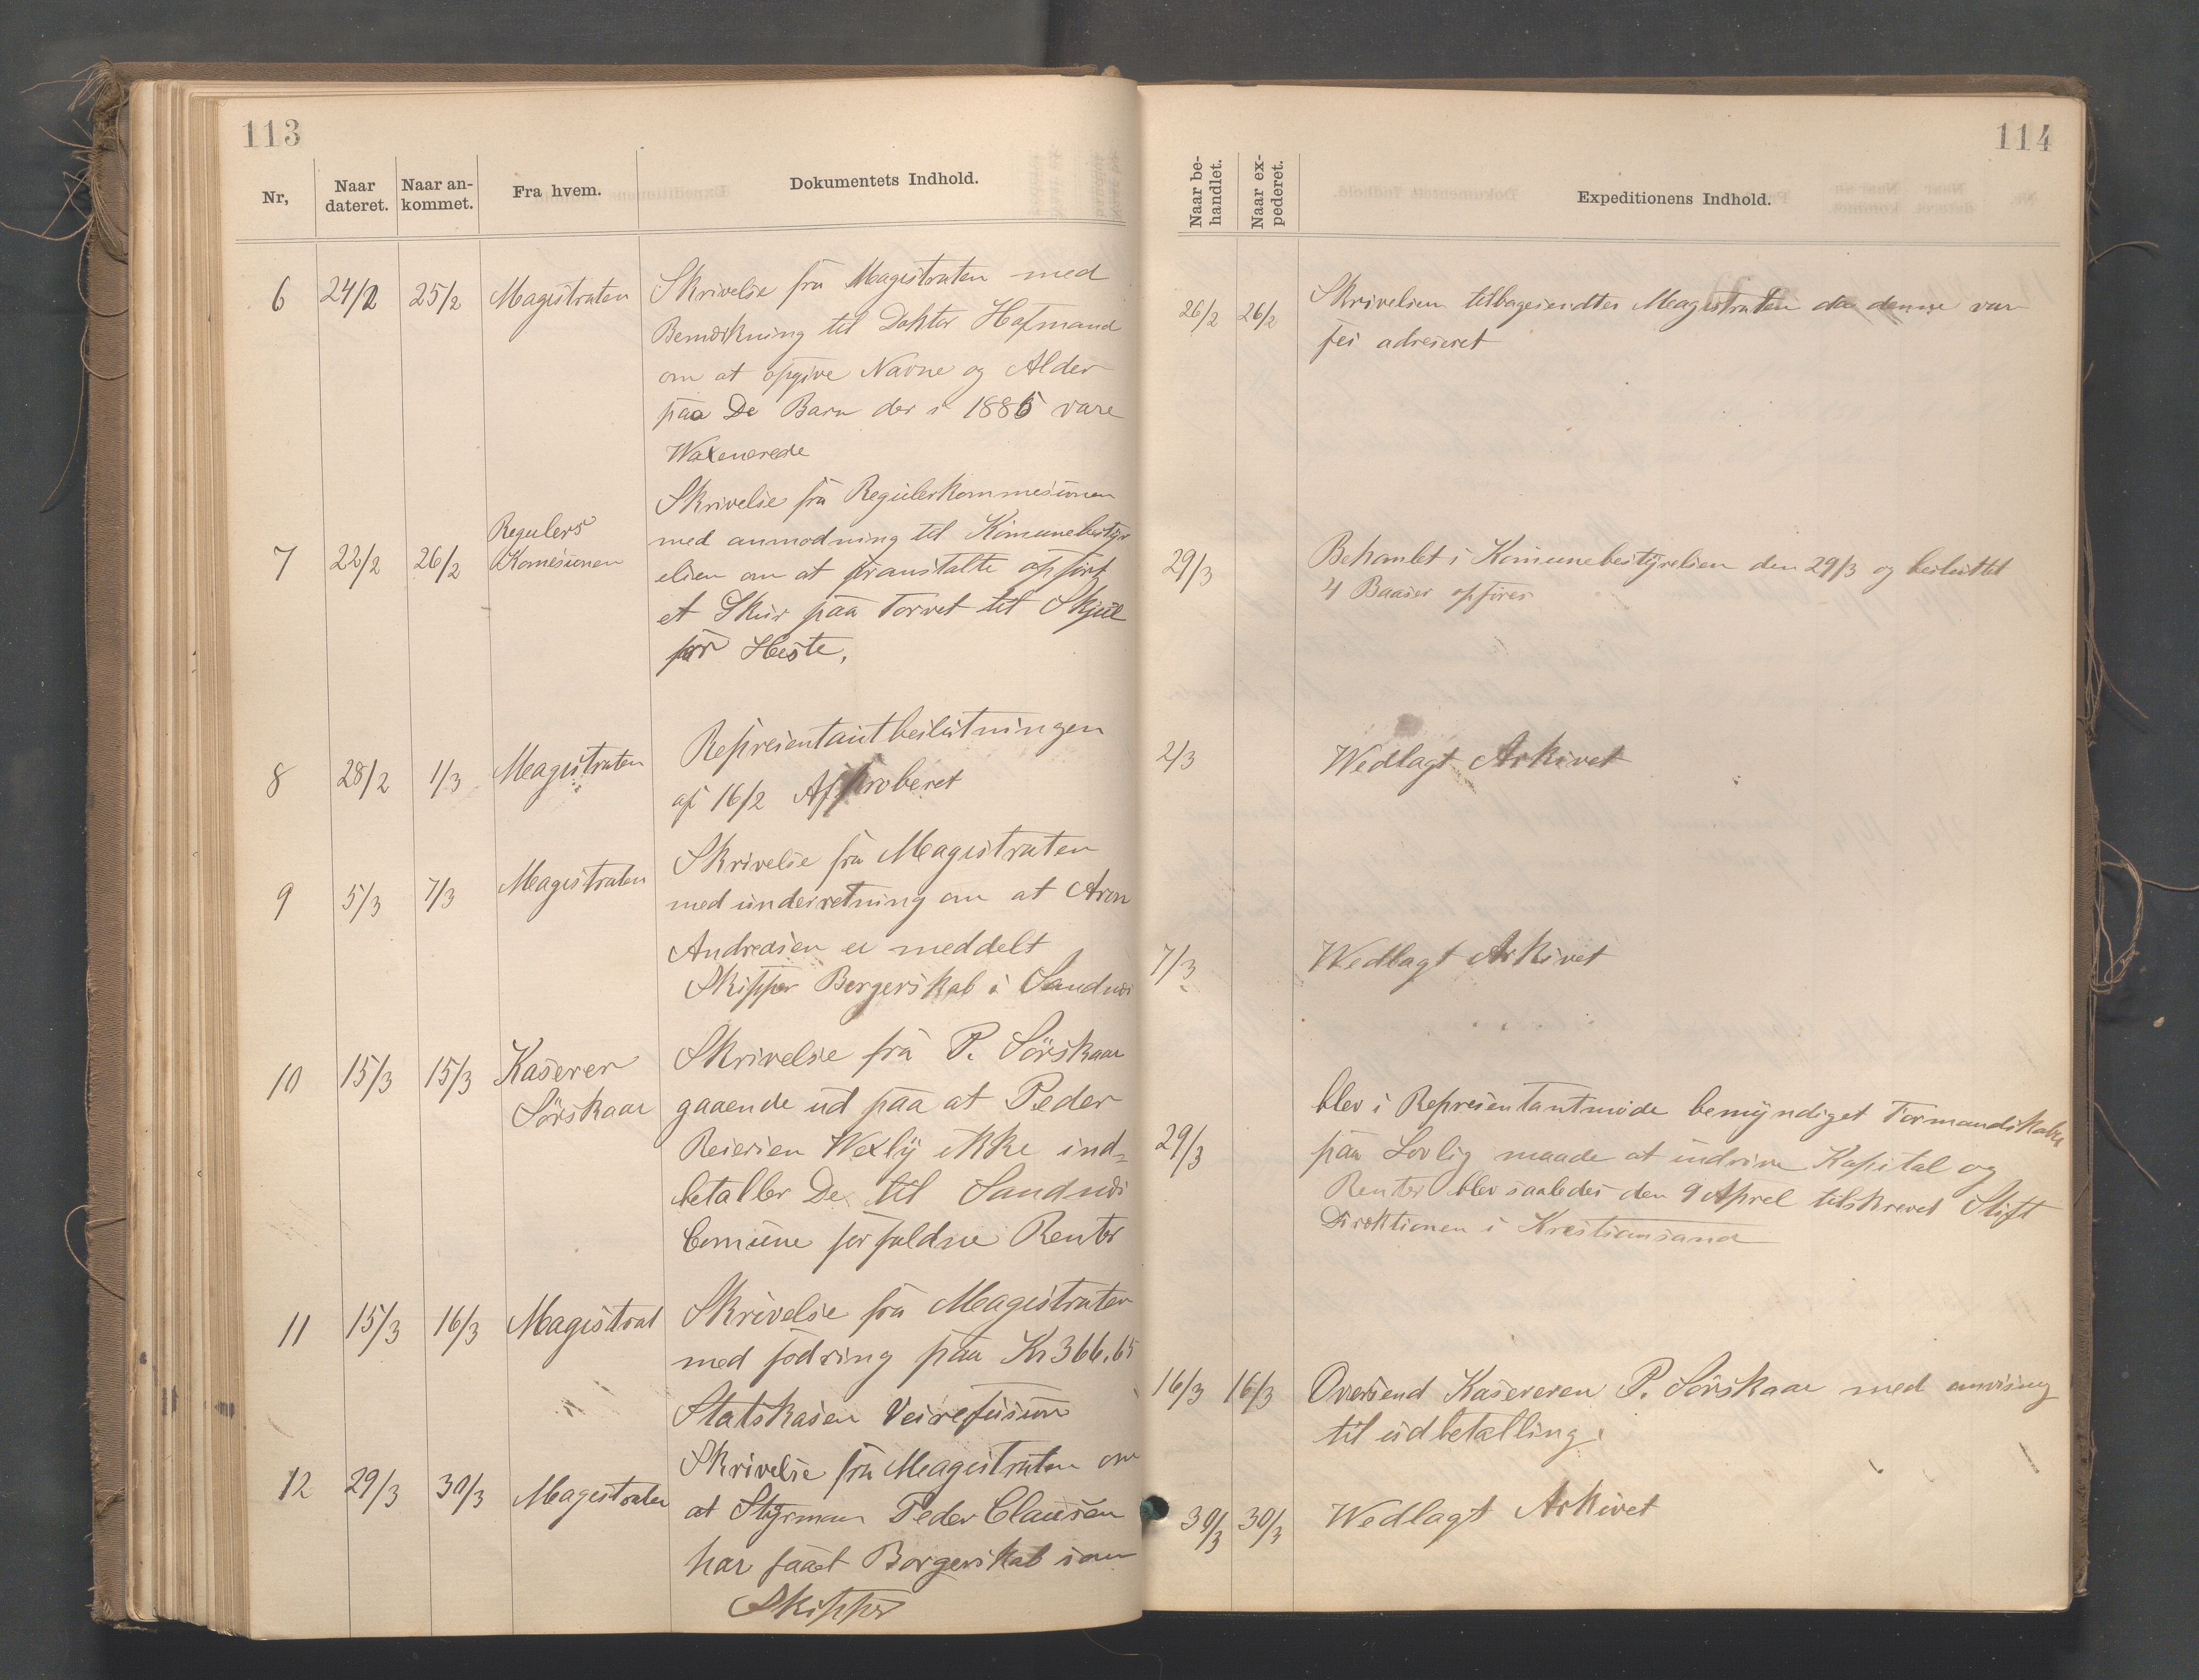 113
Nr,
Naar dateret.
Naar an-
kommet.
Fra hvem.
Dokumentets Indhold.
6 24/2 25/2 Magistraten
Skrivelse fra Magistraten med
Bemærkning til Doktor Hofmand
om at opgive Navne og Alder
paa De Barn der i 1885 vare
7 22/2 26/2 Regulers
Komesionen
Skrivelse fra Regulerkommesionen
med anmodning til Komunebestyr
elsen om at foranstalte opført
et Skur paa Torvet til Skjul
for Heste.
8 28/2 1/3 Magistraten
Represientantbeslutningen
af 16/2 Approberet
9 5/3 7/3 Magistraten
Skrivelse fra Magistraten
med underretning om at Aron
Andreasen er meddelt
Skipper Borgerskab i Sandnæs
10 15/3 15/3 Kaserer
Sörskaar
Skrivelse fra P. Sörskaar
gaaende ud paa at Peder
Reiersen ikke ind=
betaller De til Sandnæs
Comune forfaldne Renter
11 15/3 16/3 Magistrat
Skrivelse fra Magistraten
med fodring paa Kr 366,65
Statskasen Veirefusion
12 29/3 30/3 Magistraten
Skrivelse fra Magistraten om
at Styrman Peder Clausen
har faaet Borgerskab som
Skipper
114
Naar be-
handlet.
Naar ex-
pederet.
Expeditionens Indhold.
26/2 26/2 Skrivelsen tilbagesendtes Magistraten da denne var
fei adreseret
29/3 Behanlet i Komunebestyrelsen den 29/3 og besluttet
4 Baaser opføres
2/3 Wedlagt Arkivet
7/3 Wedlagt Arkivet
29/3 blev i Represientantmøde bemyndiget Formandskabet
paa Lovlig maade at indrive Kapital og
Renter blev saaledes den 9 Aprel tilskrevet Stift
Direktionen i Kristiansand
16/3 16/3 Oversend Kasereren P. Sörskaar med anvisning
til udbetalling.
30/3 30/3 Wedlagt Arkivet